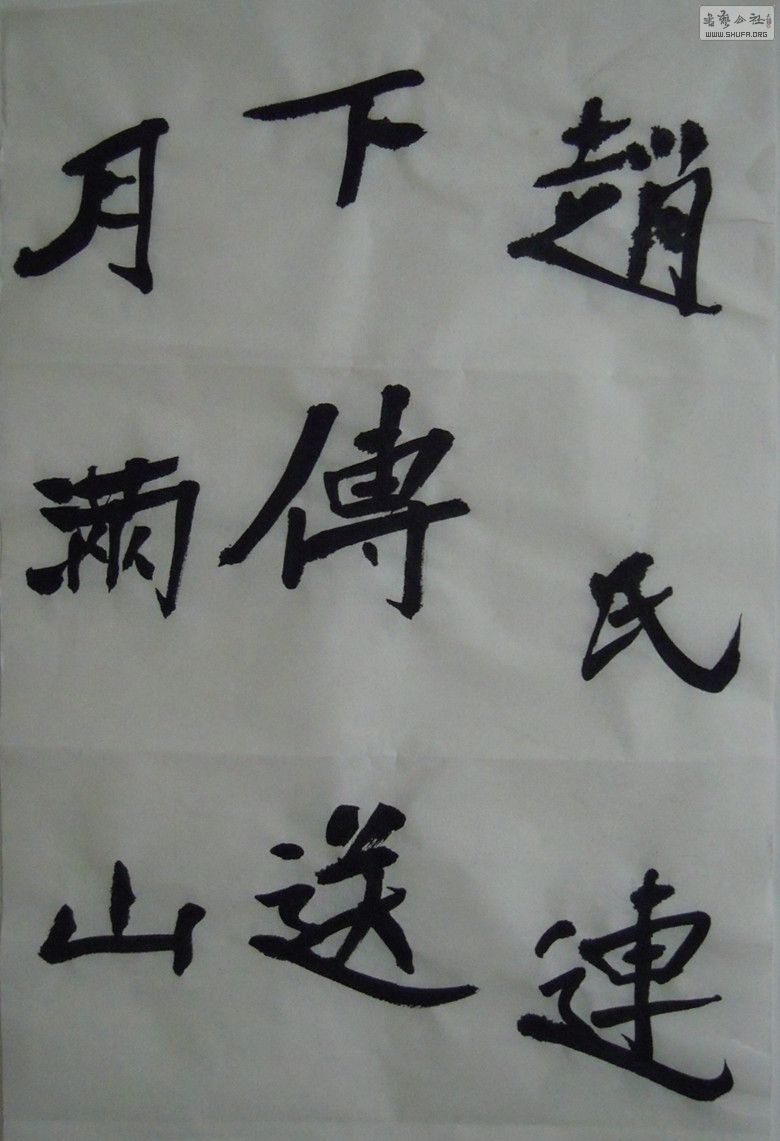 趙氏連
下傳送
月滿山
書藝公社
WWW.SHUFA.ORG